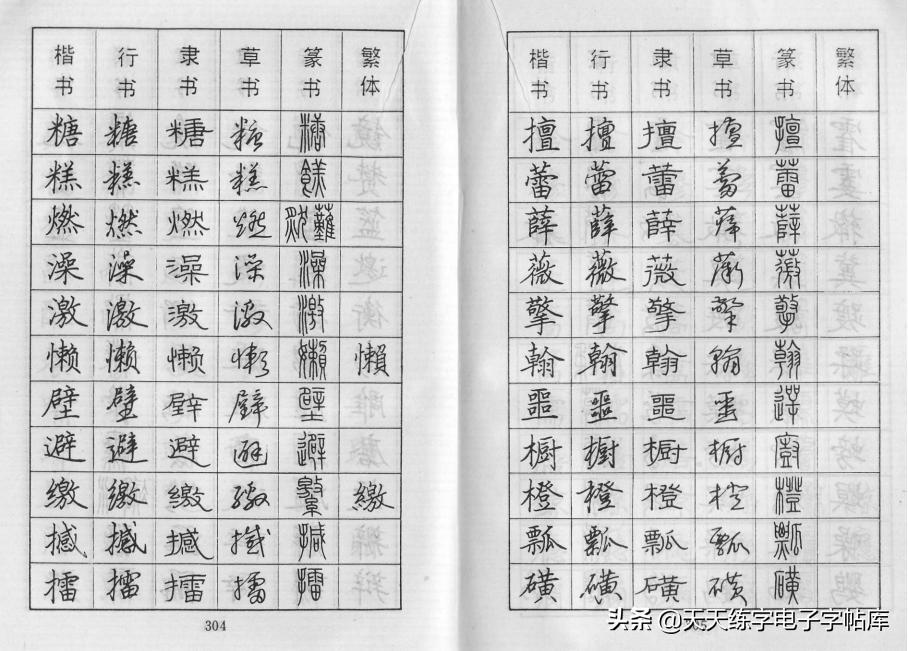 楷书 行书 隶书 草书 篆书 繁体
糖 糖 糖 糖 糖
糕 糕 糕 糕 糕
燃 燃 燃 燃 燃
澡 澡 澡 澡 澡
激 激 激 激 激
懒 懒 懒 懒 懒 懶
壁 壁 壁 壁 壁
避 避 避 避 避
缴 缴 缴 缴 缴 繳
撼 撼 撼 撼 撼
擂 擂 擂 擂 擂
304
楷书 行书 隶书 草书 篆书 繁体
擅 擅 擅 擅 擅
蕾 蕾 蕾 蕾 蕾
薛 薛 薛 薛 薛
薇 薇 薇 薇 薇
擎 擎 擎 擎 擎
翰 翰 翰 翰 翰
噩 噩 噩 噩
橱 橱 橱 橱
橙 橙 橙 橙 橙
瓢 瓢 瓢 瓢 瓢
磺 磺 磺 磺 磺
头条 @天天练字电子字帖库